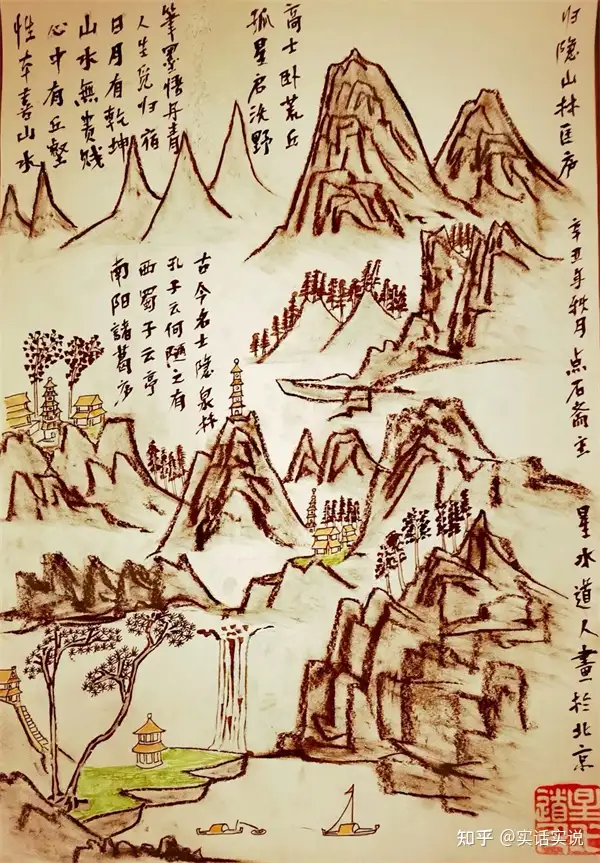 性本喜山水
心中有丘壑
山水無贵贱
日月有乾坤
人生觅归宿
筆墨悟丹青
孤星野
高士卧荒丘
南阳諸葛庐
西蜀子云亭
孔子云何陋之有
古今名士隐泉林
归隐山林匡庐
辛丑年秋月点石斋主
星水道人畫於北京
知乎 @实话实说